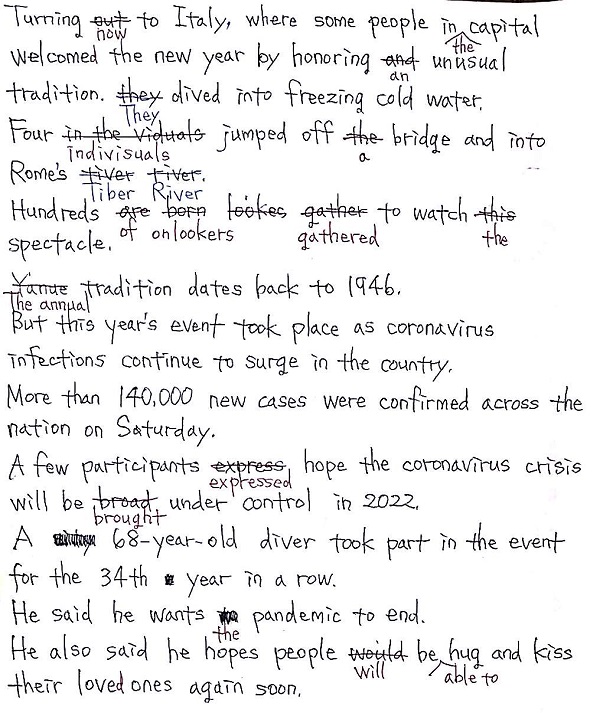 Turning out to Italy, where some people in capital
now
the
welcomed the new year by honoring and unusual
an
tradition. they dived into freezing cold water.
They
Four in the viduals jumped off the bridge and into
indivisuals
a
Rome's tiver river.
Tiber River
Hundreds are born lookes gather to watch this
of onlookers
gathered
the
spectacle.
tradition dates back to 1946.
The annual
But this year's event took place as coronavirus
infections continue to surge in the country.
More than 140,000 new cases were confirmed across the
nation on Saturday.
A few participants express hope the coronavirus crisis
expressed
will be broad under control in 2022.
brought
A 68-year-old diver took part in the event
for the 34th year in a row.
He said he wants pandemic to end.
the
He also said he hopes people would be hug and kiss
will
able to
their loved ones again soon.